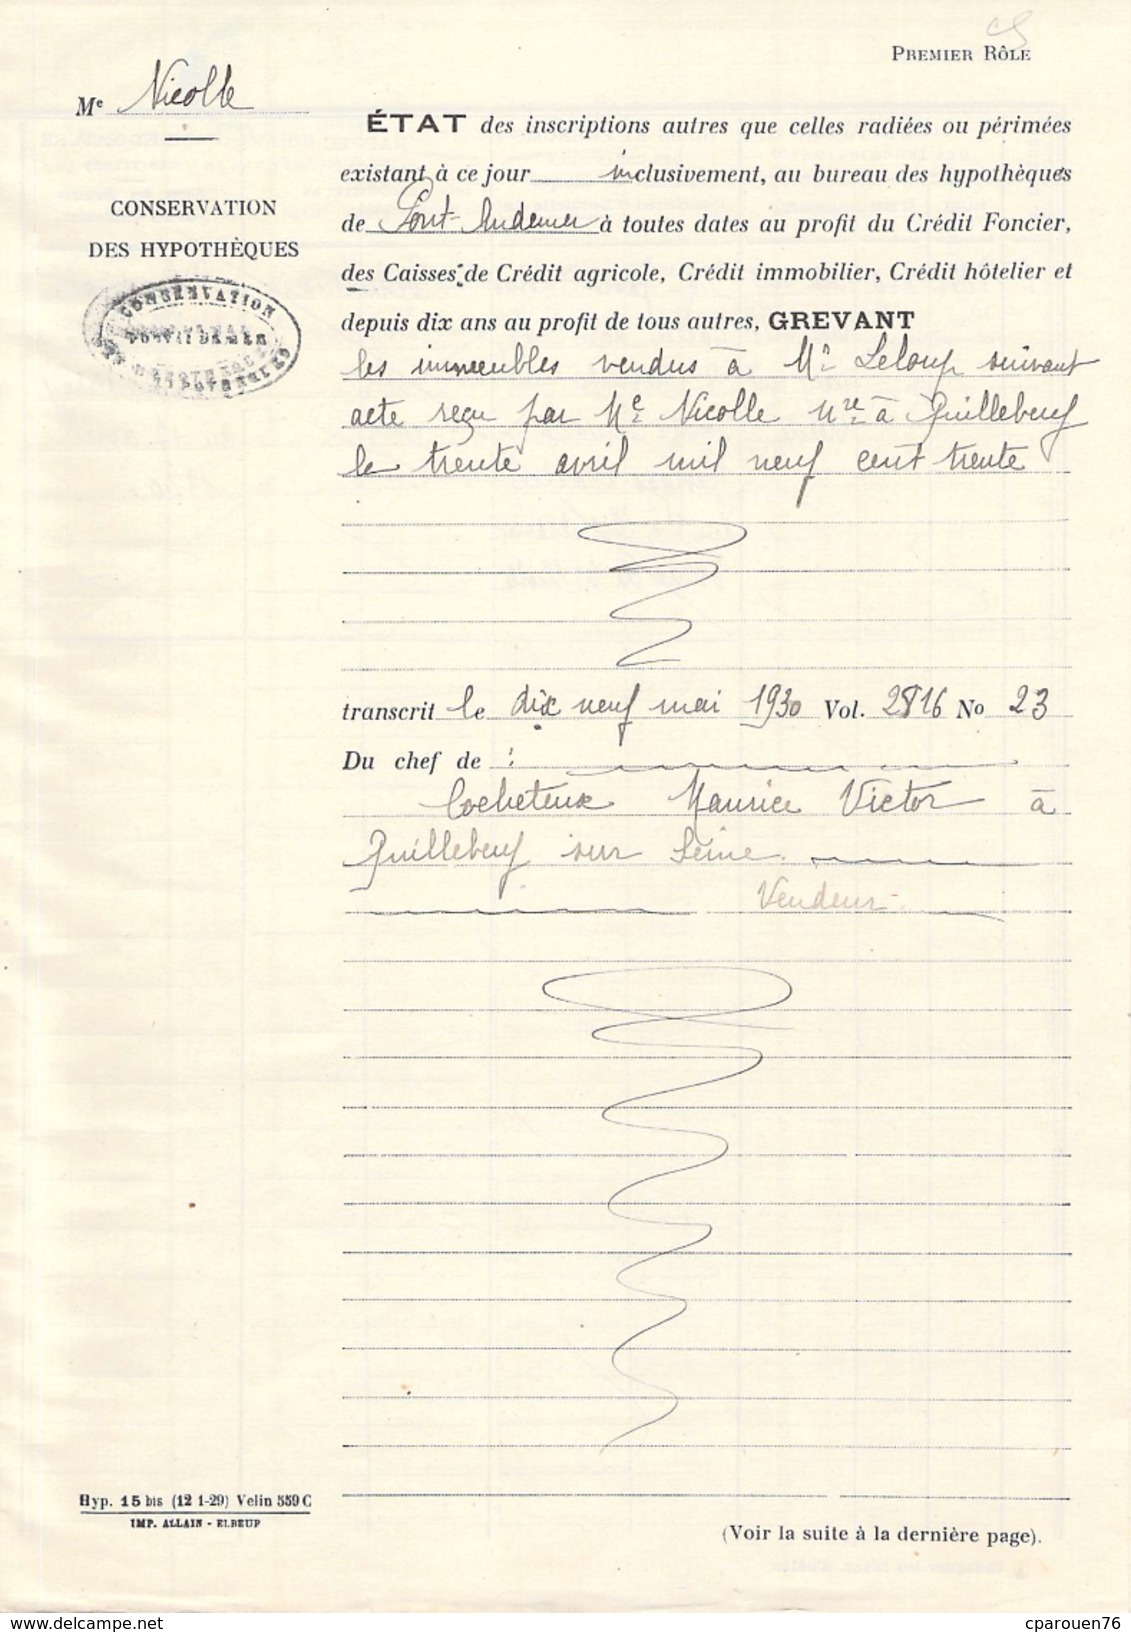 PREMIER RÔLE
Me Nicolle
CONSERVATION
DES HYPOTHÈQUES
CONSERVATION
ÉTAT des inscriptions autres que celles radiées ou périmées
existant à ce jour inclusivement, au bureau des hypothèques
de Pont-Audemer à toutes dates au profit du Crédit Foncier,
des Caisses de Crédit agricole, Crédit immobilier, Crédit hôtelier et
depuis dix ans au profit de tous autres, GREVANT
les immeubles vendus à Mr Leloup suivant
acte reçu par Me Nicolle nre à Quillebeuf
le trente avril mil neuf cent trente
transcrit le dix neuf mai 1930 Vol. 2816 No 23
Du chef de :
Cocheteux Maurice Victor à
Quillebeuf sur Seine.
Vendeur.
Hyp. 15 bis (12 1-29) Velin 559 C
IMP. ALLAIN - ELBEUF
(Voir la suite à la dernière page).
www.delcampe.net
cparouen76